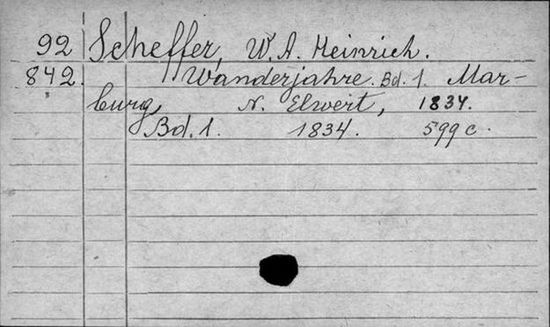 92 Scheffer, W. A. Heinrich.
842. Wanderjahre. Bd. 1. Mar-
burg, N. Elwert, 1834.
Bd. 1. 1834. 599 c.